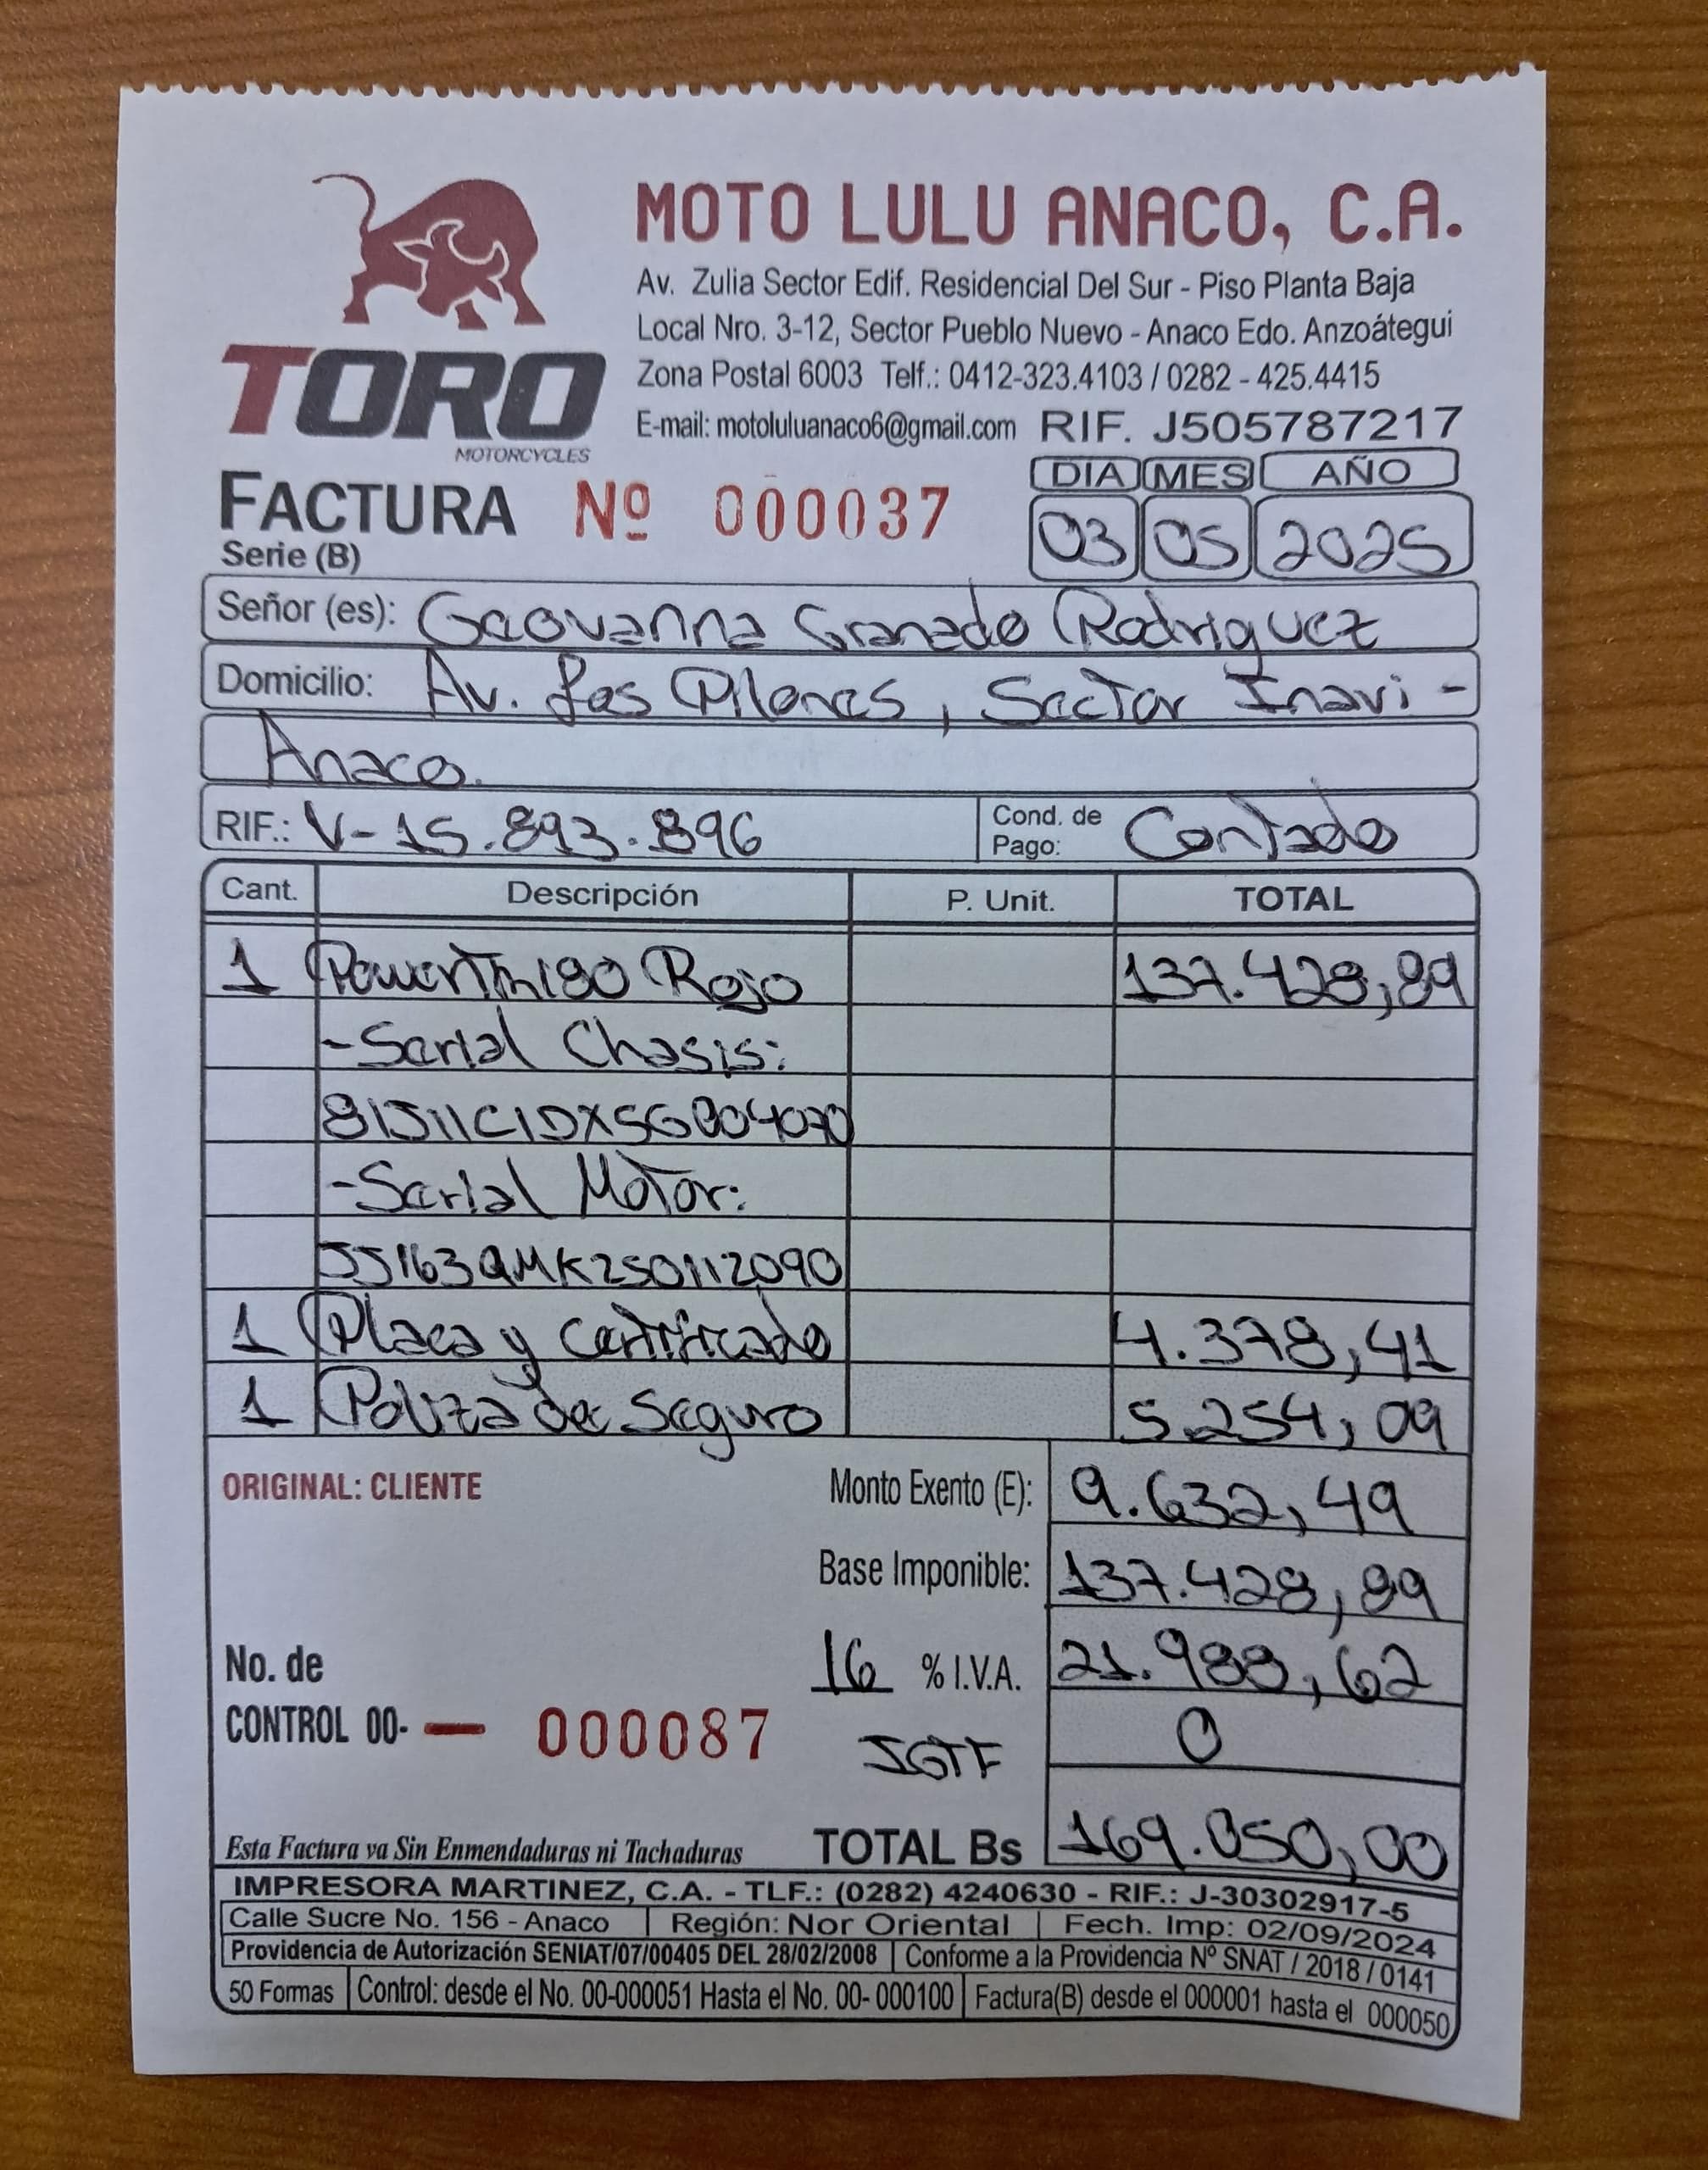 MOTO LULU ANACO, C.A.
Av. Zulia Sector Edif. Residencial Del Sur - Piso Planta Baja
Local Nro. 3-12, Sector Pueblo Nuevo - Anaco Edo. Anzoátegui
Zona Postal 6003 Telf.: 0412-323.4103 / 0282 - 425.4415
E-mail: motoluluanaco6@gmail.com RIF. J505787217
TORO
MOTORCYCLES
FACTURA Nº 000037
Serie (B)
DIA MES AÑO
03 05 2025
Señor (es): Geovanna Granado Rodriguez
Domicilio: Av. Los Pilones, Sector Inavi -
Anaco.
RIF.: V-15.893.896 Cond. de Pago: Contado
Cant. Descripción P. Unit. TOTAL
1 Rojo 137.428,89
-Serial Chasis:
-Serial Motor:
JJ163QMK250112090
1 Placa y Certificado 4.378,41
1 Poliza de Seguro 5.254,09
ORIGINAL: CLIENTE
Monto Exento (E): 9.632,49
Base Imponible: 137.428,89
16 % I.V.A. 21.988,62
IGTF 0
No. de
CONTROL 00- — 000087
Esta Factura va Sin Enmendaduras ni Tachaduras
TOTAL Bs 169.050,00
IMPRESORA MARTINEZ, C.A. - TLF.: (0282) 4240630 - RIF.: J-30302917-5
Calle Sucre No. 156 - Anaco Región: Nor Oriental Fech. Imp: 02/09/2024
Providencia de Autorización SENIAT/07/00405 DEL 28/02/2008 Conforme a la Providencia Nº SNAT / 2018 / 0141
50 Formas Control: desde el No. 00-000051 Hasta el No. 00- 000100 Factura(B) desde el 000001 hasta el 000050